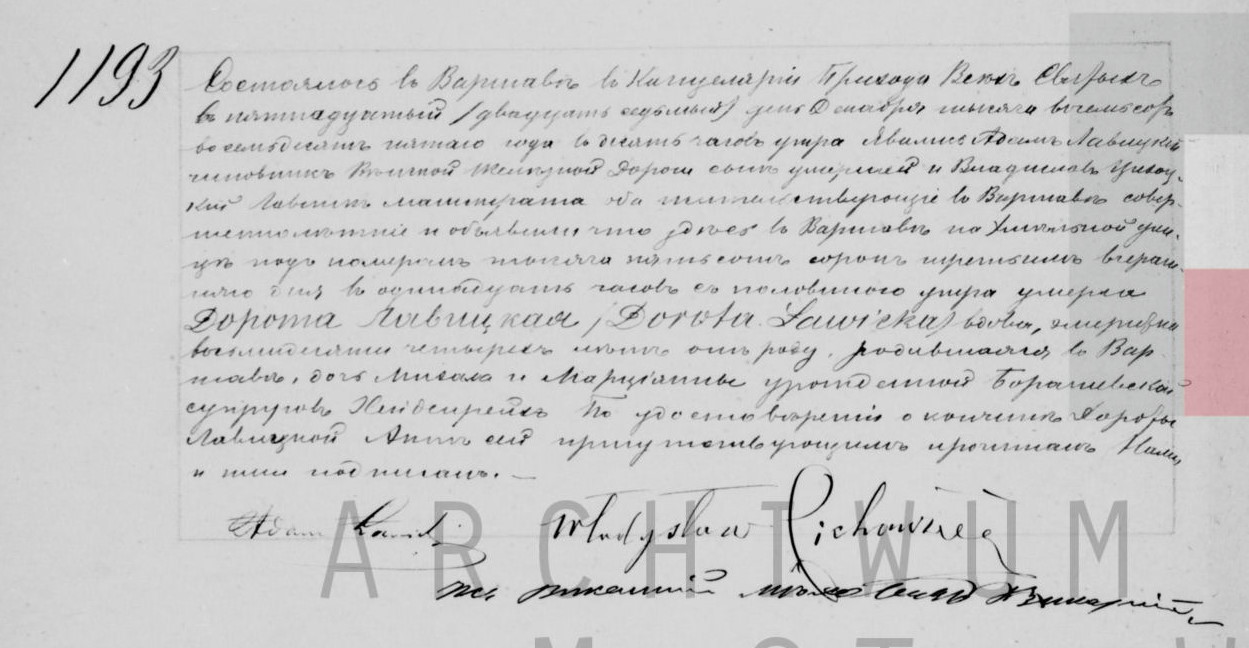 1193
Состоялось въ Варшавѣ въ Канцеляріи Прихода Всѣхъ Святыхъ
въ пятнадцатый /двадцать седьмый/ день Декабря тысяча восемьсотъ
восемьдесятъ пятаго года въ десять часовъ утра. Явились Адамъ Лавицкій
чиновникъ Вѣнской Желѣзной Дороги сынъ умершей и Владиславъ Цихоц-
кій Лавникъ магистрата оба жительствующіе въ Варшавѣ совер-
шеннолѣтніе и объявили что здѣсь въ Варшавѣ на Хмѣльной ули-
цѣ подъ номеромъ тысяча пятьсотъ сорокъ третьимъ вчераш-
няго дня въ одинадцать часовъ съ половиною утра умерла
Дорота Лавицкая /Dorota Ławicka/ вдова, эмеритка
восьмидесяти четырехъ лѣтъ отъ роду, родившаяся въ Вар-
шавѣ, дочь Михала и Марціанны урожденной
супруговъ Хейденрейхъ По удостовѣреніи о кончинѣ Дороты
Лавицкой Актъ сей присутствующимъ прочитанъ Нами
и ними подписанъ. —
Adam Ławicki Władysław
ARCHIWUM